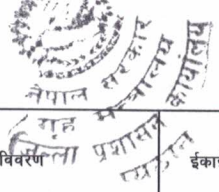 नेपाल सरकार
गृह मन्त्रालय
जिल्ला प्रशासन कार्यालय
विवरण